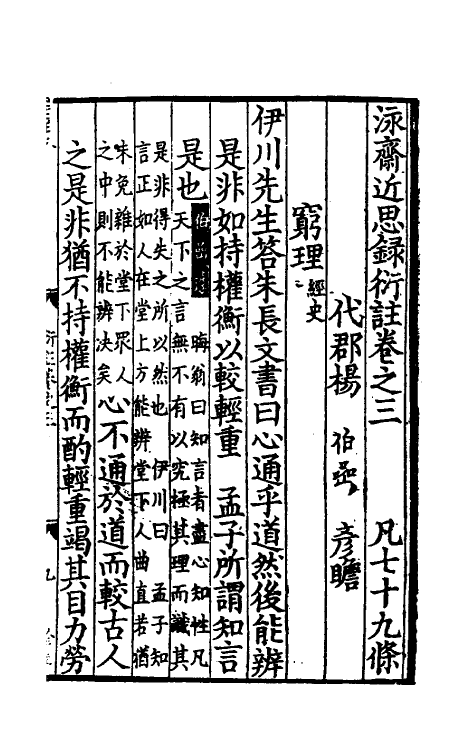 泳齋近思錄衍註卷之三　凡七十九條
代郡楊　伯嵒　彥瞻
窮理 經史
伊川先生答朱長文書曰心通乎道然後能辨
是非如持權衡以較輕重　孟子所謂知言
是也
伯嵒 晦翁曰知言者盡心知性凡
天下之言無不有以究極其理而識其
是非得失之所以然也　伊川曰　孟子知
言正如人在堂上方能辨堂下人曲直若猶
未免雜於堂下眾人
之中則不能辨決矣
心不通於道而較古人
之是非猶不持權衡而酌輕重竭其目力勞
九